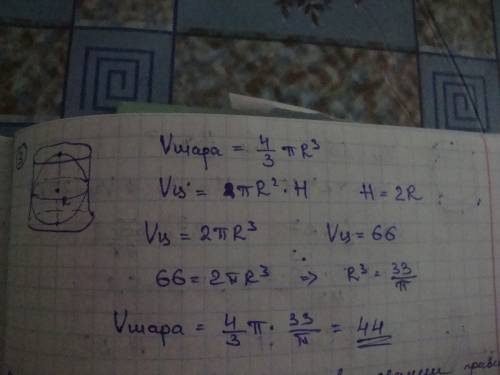 Vшара = 4/3 πR³
Vц = πR²·H   H = 2R
Vц = 2πR³   Vц = 66
66 = 2πR³ ⇒ R³ = 33/π
Vшара = 4/3 π · 33/π = 44